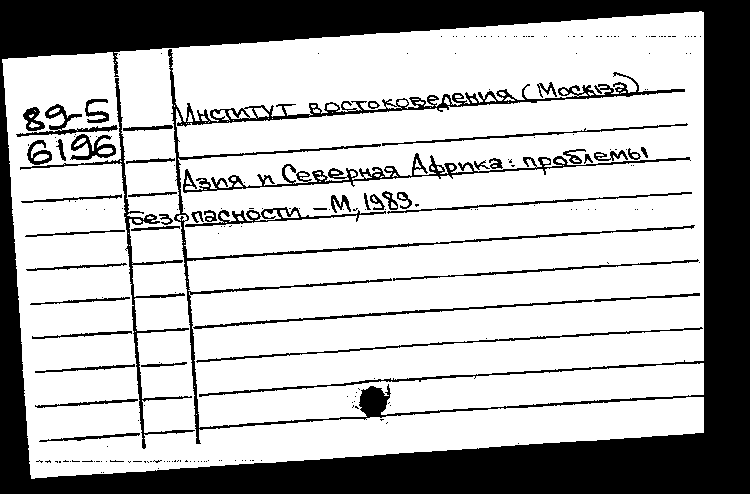 89-5
6196
Институт востоковедения (Москва).
Азия и Северная Африка: проблемы
безопасности. – М., 1989.